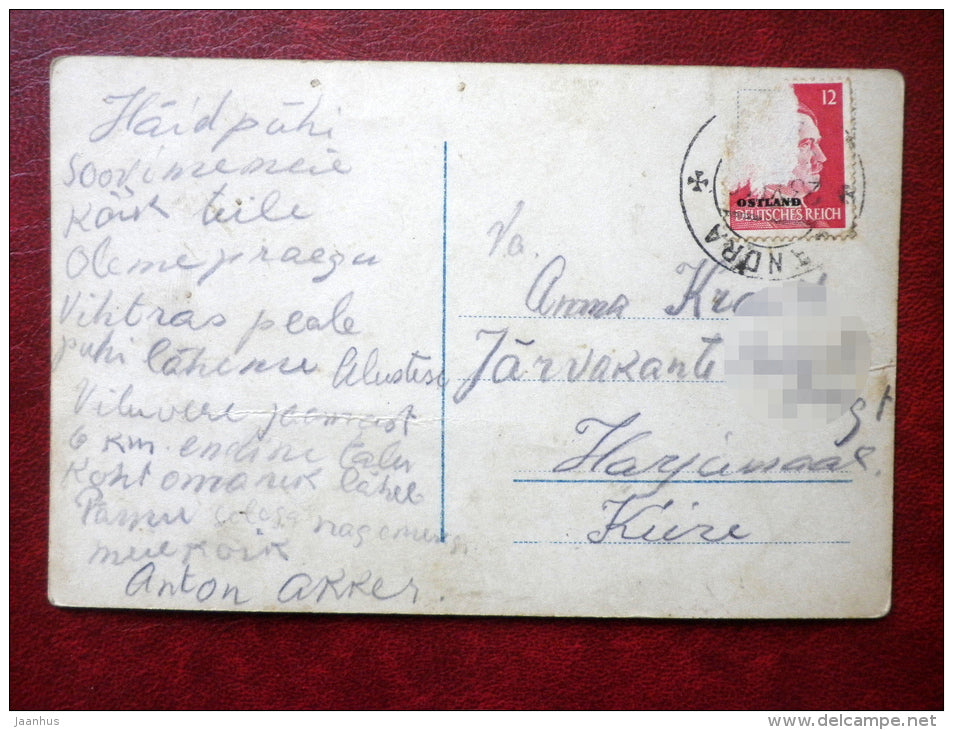 Häid pühi
soovime meie
kõik teile
Oleme praegu
Vihtras peale
pühi läheme Alustese
Viluvere jaamast
6 km. endine talu
koht omanik läheb
Pärnu
meie kõik
Anton Akker.
12
OSTLAND
DEUTSCHES REICH
NDRA
Va.
Anna
Järvakanti
Harjumaal.
Kiire
Jaanhus
www.delcampe.net